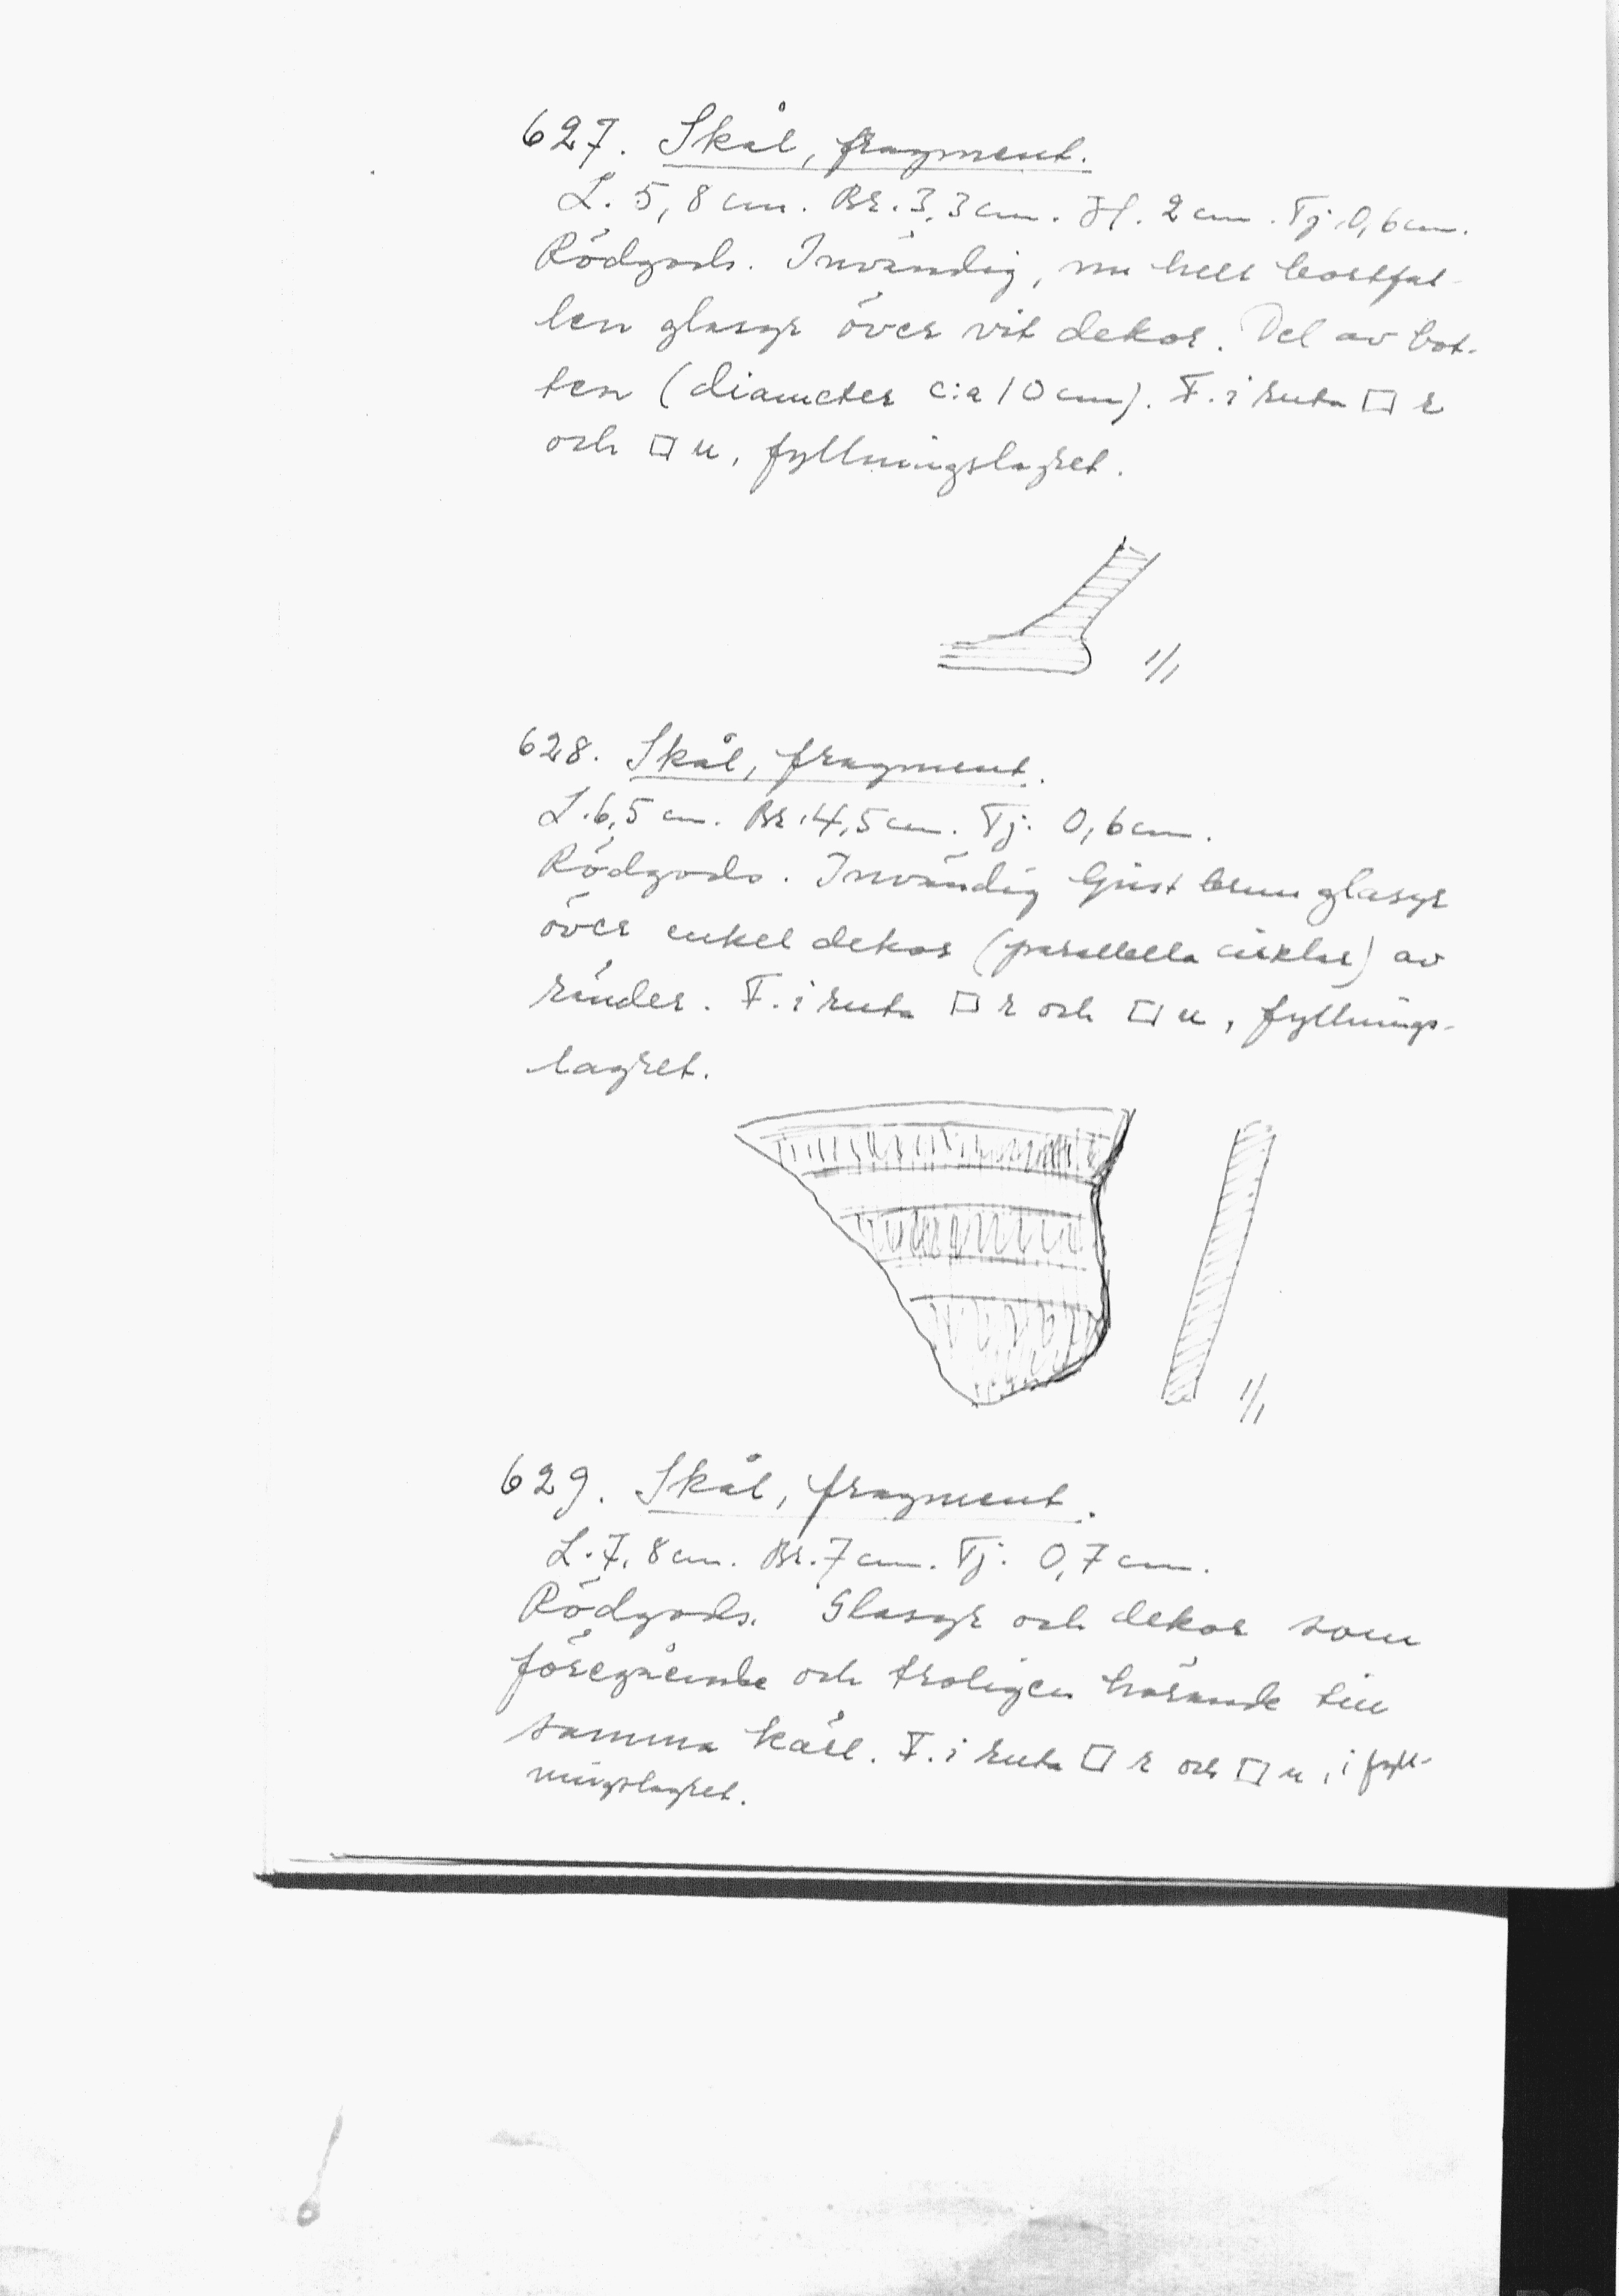 627. Skål, fragment.
L. 5,8 cm. Br. 3,3 cm. H. 2 cm. Tj. 0,6 cm.
Rödgods. Invändig, nu helt bortfal-
len glasyr över vit dekor. Del av bot-
ten (diameter c:a 10 cm). F. i ruta □ r
och □ u, fyllningslagret.
1/1
628. Skål, fragment.
L. 6,5 cm. Br. 4,5 cm. Tj. 0,6 cm.
Rödgods. Invändig ljust brun glasyr
över enkel dekor (parallella cirklar) av
ränder. F. i ruta □ r och □ u, fyllnings-
lagret.
1/1
629. Skål, fragment.
L. 7,8 cm. Br. 7 cm. Tj. 0,7 cm.
Rödgods. Glasyr och dekor som
föregående och troligen hörande till
samma kärl. F. i ruta □ r och □ u, i fyll-
ningslagret.